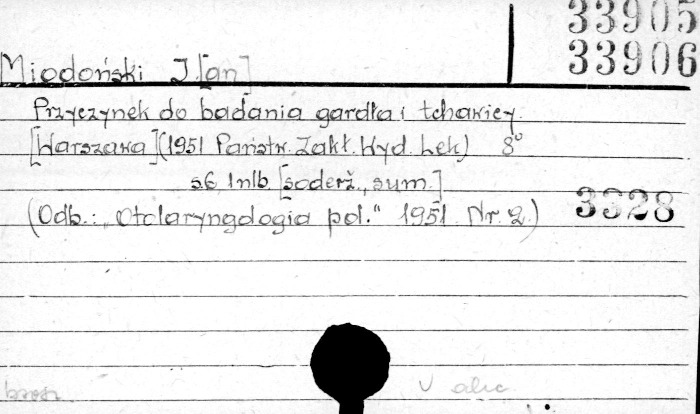 33905
33906
Miodoński J.[an]
Przyczynek do badania gardła i tchawicy.
[Warszawa] (1951 Państw. Zakł. Wyd. Lek.) 8°
s6, 1nlb. [soderż., sum.]
(Odb.: „Otolaryngologia pol." 1951. Nr. 2.) 3328
brosz.